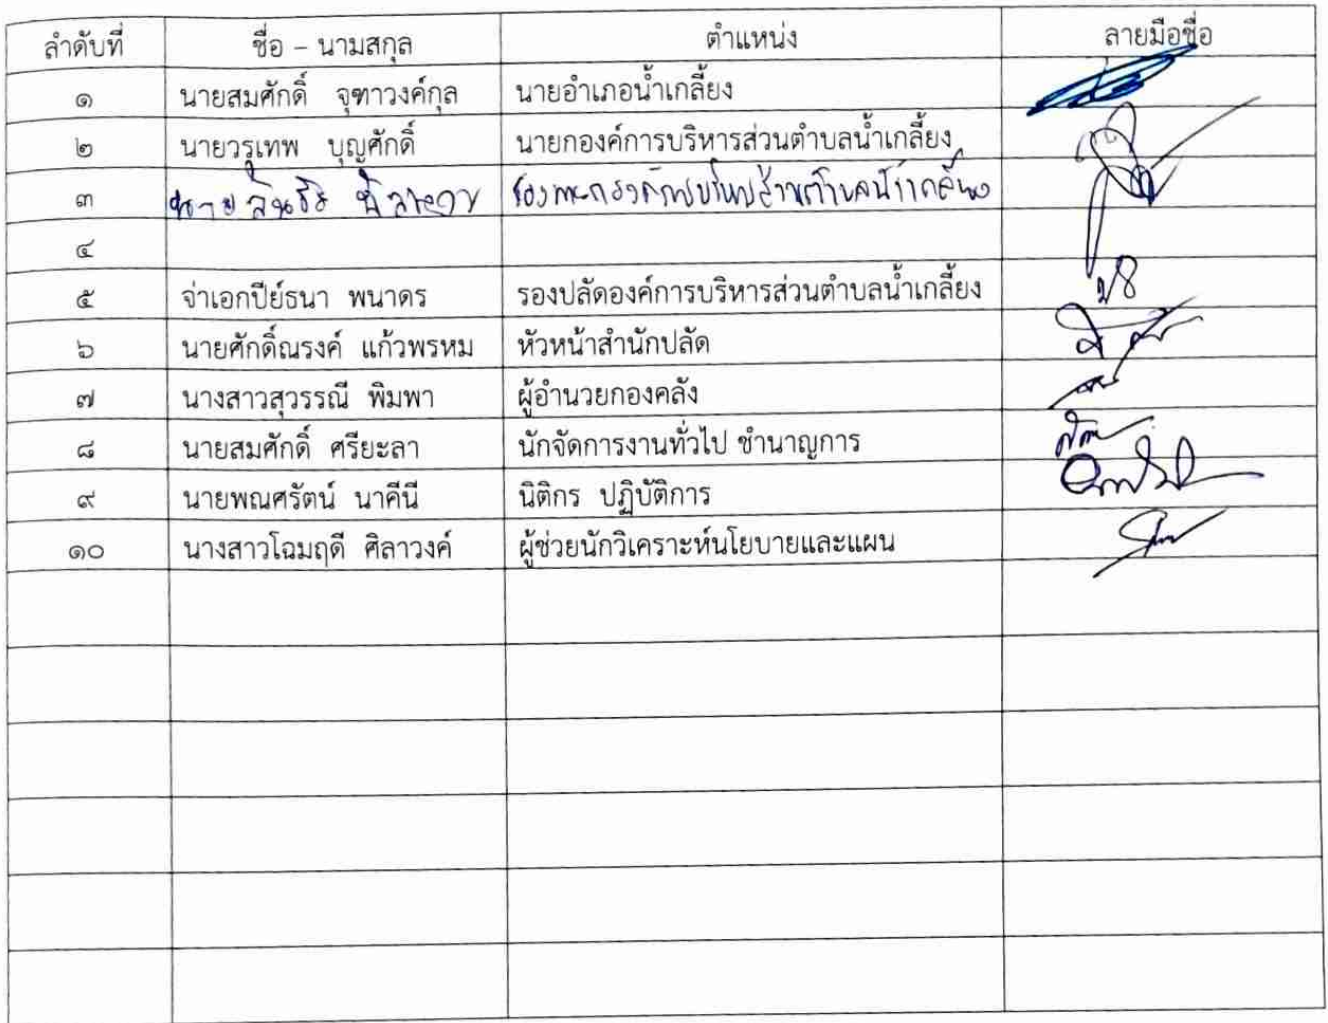 ลำดับที่ ชื่อ – นามสกุล ตำแหน่ง ลายมือชื่อ
๑ นายสมศักดิ์ จุฑาวงค์กุล นายอำเภอน้ำเกลี้ยง
๒ นายวรุเทพ บุญศักดิ์ นายกองค์การบริหารส่วนตำบลน้ำเกลี้ยง
๓ นาย
๔
๕ จ่าเอกปีย์ธนา พนาดร รองปลัดองค์การบริหารส่วนตำบลน้ำเกลี้ยง
๖ นายศักดิ์ณรงค์ แก้วพรหม หัวหน้าสำนักปลัด
๗ นางสาวสุวรรณี พิมพา ผู้อำนวยกองคลัง
๘ นายสมศักดิ์ ศรียะลา นักจัดการงานทั่วไป ชำนาญการ
๙ นายพณศรัตน์ นาคีนี นิติกร ปฏิบัติการ
๑๐ นางสาวโฉมฤดี ศิลาวงค์ ผู้ช่วยนักวิเคราะห์นโยบายและแผน